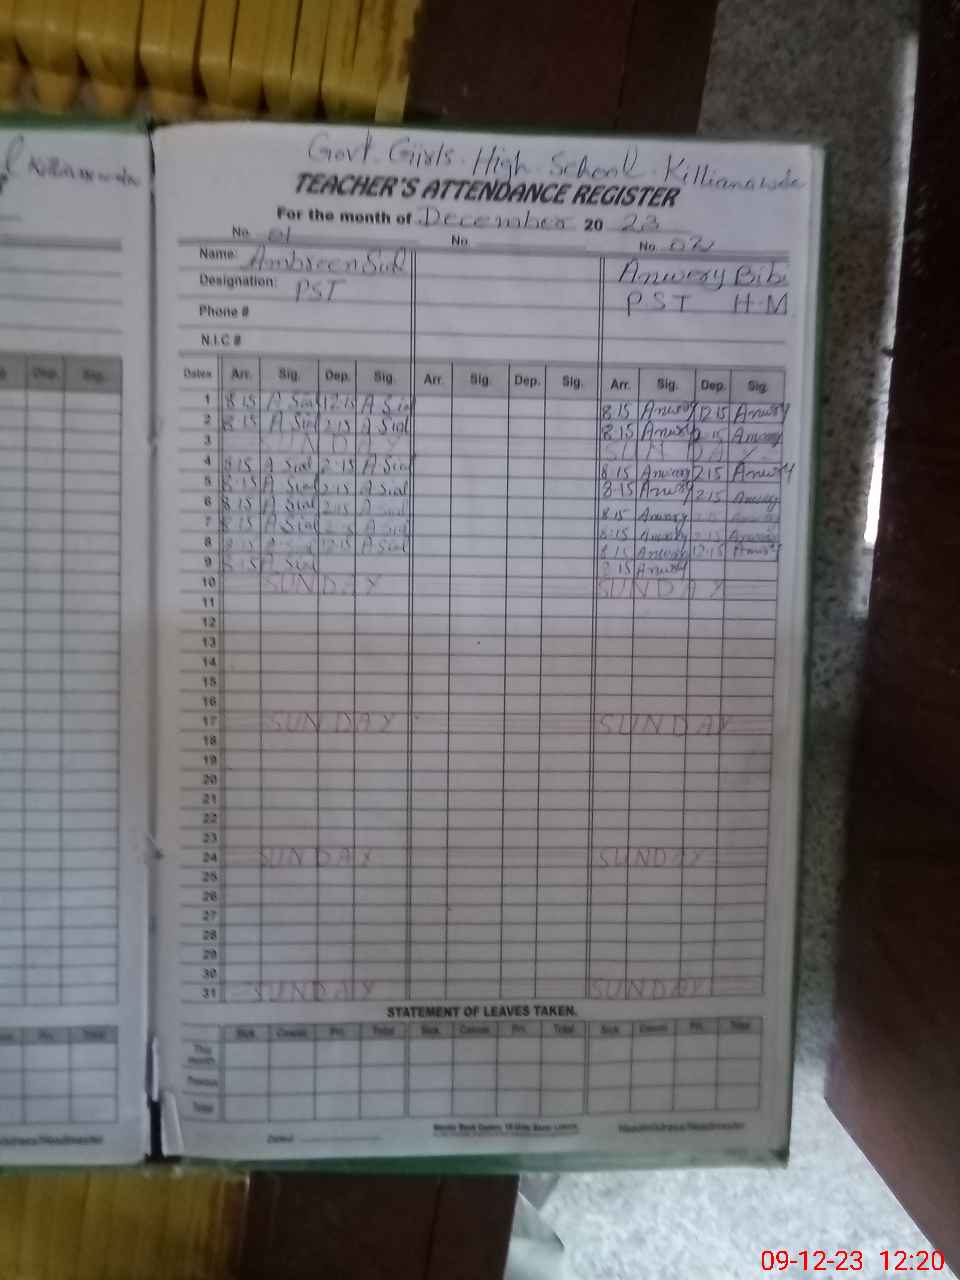 Govt. Girls. High School Killianawala
TEACHER'S ATTENDANCE REGISTER
For the month of December 20 23
No. 01 No. No. 02
Name: Ambreen Sial Anwery Bibi
Designation: PST PST H.M
Phone #
N.I.C #
Dates Arr. Sig. Dep. Sig. Arr. Sig. Dep. Sig. Arr. Sig. Dep. Sig.
1 8.15 A Sial 12.15 A Sial 8.15 Anwery 12.15 Anwery
2 8.15 A Sial 2.15 A Sial 8.15 Anwery 2.15 Anwery
3 SUNDAY SUNDAY
4 8.15 A Sial 2.15 A Sial 8.15 Anwery 2.15 Anwery
5 8.15 A Sial 2.15 A Sial 8.15 Anwery 2.15 Anwery
6 8.15 A Sial 2.15 A Sial 8.15 Anwery
7 8.15 A Sial 2.15 A Sial 8.15 Anwery 2.15 Anwery
8 8.15 A Sial 12.15 A Sial 8.15 Anwery 12.15 Anwery
9 8.15 A Sial 8.15 Anwery
10 SUNDAY SUNDAY
11
12
13
14
15
16
17 SUNDAY SUNDAY
18
19
20
21
22
23
24 SUNDAY SUNDAY
25
26
27
28
29
30
31 SUNDAY SUNDAY
STATEMENT OF LEAVES TAKEN.
Sick Casual Pri. Total Sick Casual Pri. Total Sick Casual Pri. Total
This month
Previous
Total
Dated Headmistress/Headmaster
09-12-23 12:20